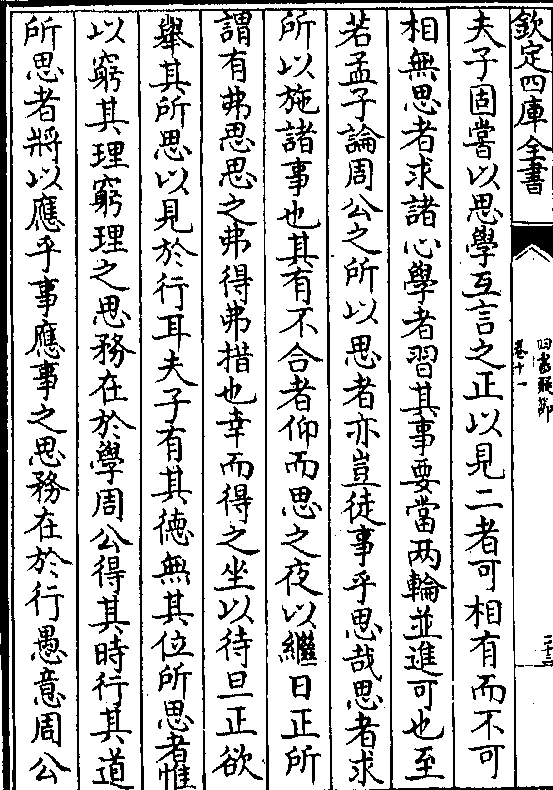 欽定四庫全書
四書疑節
卷十一
夫子固嘗以思學互言之正以見二者可相有而不可
相無思者求諸心學者習其事要當兩輪並進可也至
若孟子論周公之所以思者亦豈徒事乎思哉思者求
所以施諸事也其有不合者仰而思之夜以繼日正所
謂有弗思思之弗得弗措也幸而得之坐以待旦正欲
舉其所思以見於行耳夫子有其德無其位所思者惟
以窮其理窮理之思務在於學周公得其時行其道
所思者將以應乎事應事之思務在於行愚意周公